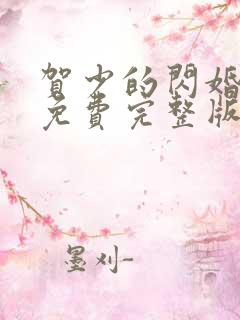 賀少的閃婚
免費完整版
墨刈-